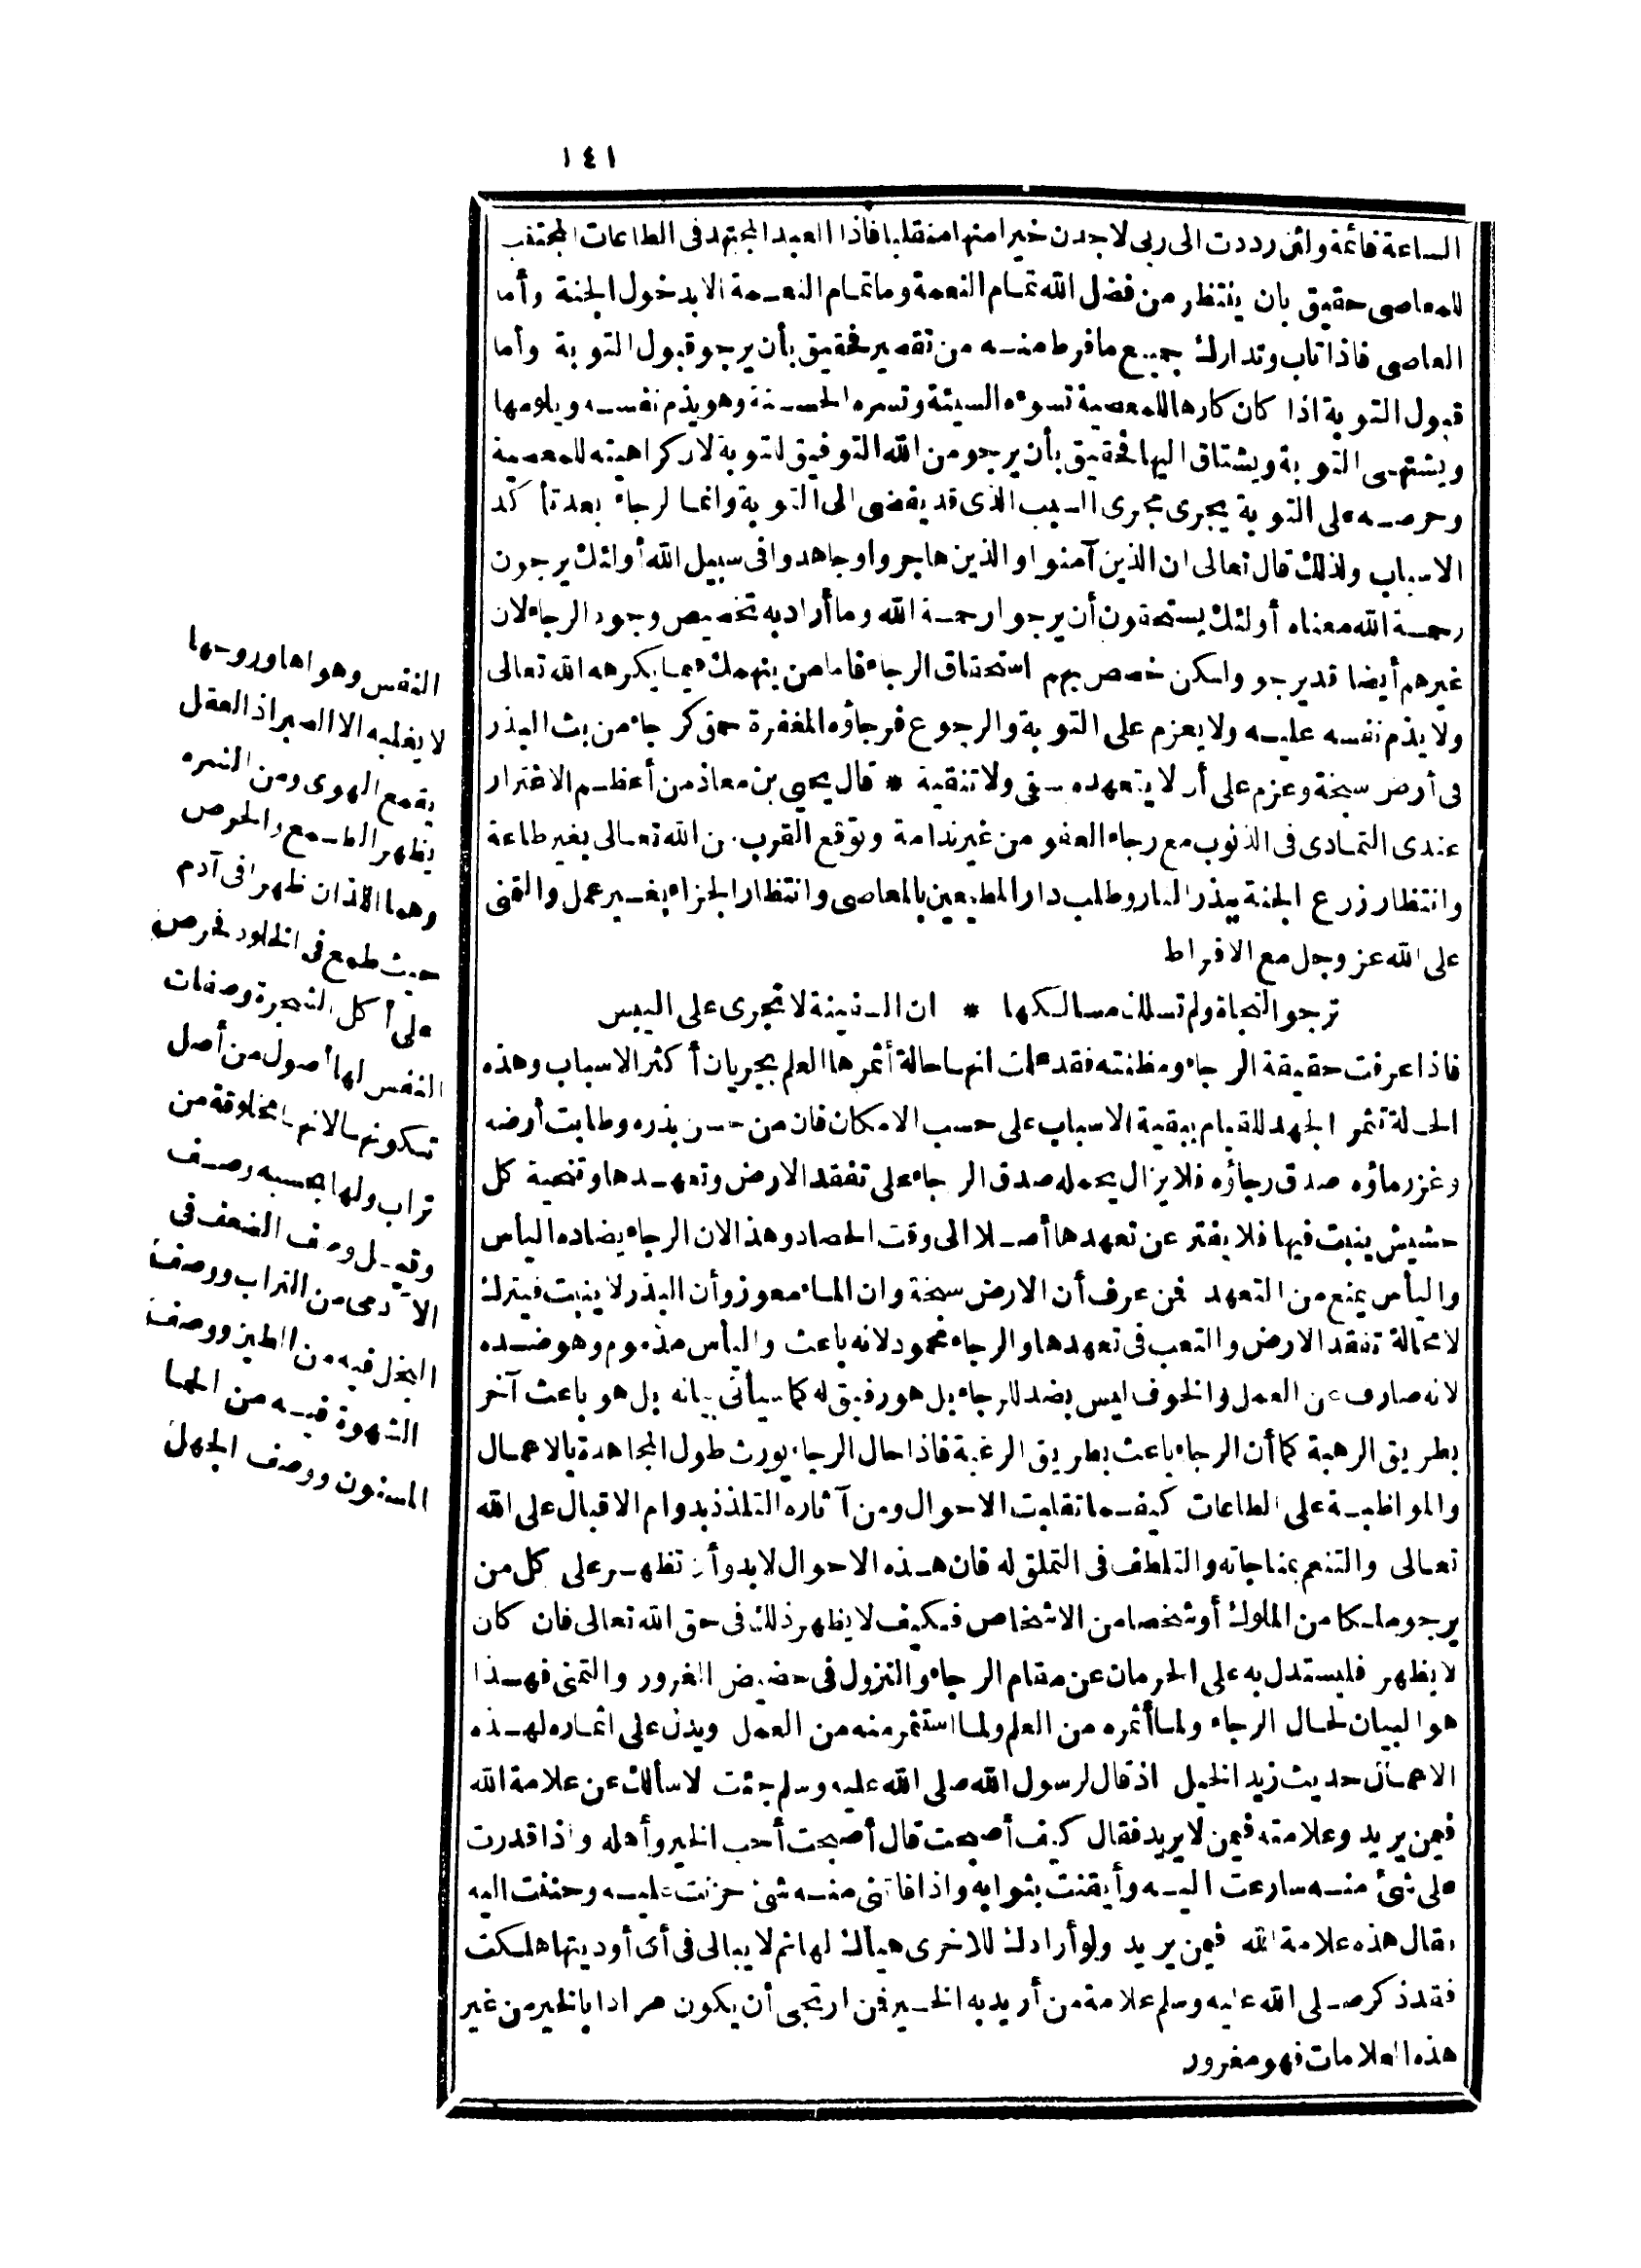 ١٤١
الساعة قائمة ولئن رددت الى ربى لاجدن خيرا منها منقلبا فاذا العبد المجتهد فى الطاعات المجتنب
للمعاصى حقيق بان ينتظر من فضل الله تمام النعمة وما تمام النعمة الا بدخول الجنة وأما
العاصى فاذا تاب وتدارك جميع ما فرط منه من تقصير فحقيق بأن يرجو قبول التوبة وأما
قبول التوبة اذا كان كارها للمعصية تسوءه السيئة وتسره الحسنة وهو يذم نفسه ويلومها
ويشتهى التوبة ويشتاق اليها فحقيق بأن يرجو من الله التوفيق للتوبة لان كراهيته للمعصية
وحرصه على التوبة يجرى مجرى السبب الذى قد يفضى الى التوبة وانما الرجاء بعد تأكد
الاسباب ولذلك قال تعالى ان الذين آمنوا والذين هاجروا وجاهدوا فى سبيل الله أولئك يرجون
رحمة الله معناه أولئك يستحقون أن يرجوا رحمة الله وما أراد به تخصيص وجود الرجاء لان
غيرهم أيضا قد يرجو ولكن خصص بهم استحقاق الرجاء فاما من ينهمك فيما يكرهه الله تعالى
ولا يذم نفسه عليه ولا يعزم على التوبة والرجوع فرجاؤه المغفرة حمق كرجاء من بث البذر
فى أرض سبخة وعزم على أن لا يتعهده بسقى ولا تنقية * قال يحيى بن معاذ من أعظم الاغترار
عندى التمادى فى الذنوب مع رجاء العفو من غير ندامة وتوقع القرب من الله تعالى بغير طاعة
وانتظار زرع الجنة ببذر النار وطلب دار المطيعين بالمعاصى وانتظار الجزاء بغير عمل والتمنى
على الله عز وجل مع الافراط
ترجو النجاة ولم تسلك مسالكها * ان السفينة لا تجرى على اليبس
فاذا عرفت حقيقة الرجاء ومظنته فقد علمت انها حالة أثمرها العلم بجريان أكثر الاسباب وهذه
الحالة تثمر الجهد للقيام ببقية الاسباب على حسب الامكان فان من حسن بذره وطابت أرضه
وغزر ماؤه صدق رجاؤه فلا يزال يحمله صدق الرجاء على تفقد الارض وتعهدها وتنحية كل
حشيش ينبت فيها فلا يفتر عن تعهدها أصلا الى وقت الحصاد وهذا لان الرجاء يضاده اليأس
واليأس يمنع من التعهد فمن عرف أن الارض سبخة وان الماء معوز وأن البذر لا ينبت فيترك
لا محالة تفقد الارض والتعب فى تعهدها والرجاء محمود لانه باعث واليأس مذموم وهو ضده
لانه صارف عن العمل والخوف ليس بضد للرجاء بل هو رفيق له كما سيأتى بيانه بل هو باعث آخر
بطريق الرهبة كما أن الرجاء باعث بطريق الرغبة فاذا حال الرجاء يورث طول المجاهدة بالاعمال
والمواظبة على الطاعات كيفما تقلبت الاحوال ومن آثاره التلذذ بدوام الاقبال على الله
تعالى والتنعم بمناجاته والتلطف فى التملق له فان هذه الاحوال لا بد وأن تظهر على كل من
يرجو ملكا من الملوك أو شخصا من الاشخاص فكيف لا يظهر ذلك فى حق الله تعالى فان كان
لا يظهر فليستدل به على الحرمان عن مقام الرجاء والنزول فى حضيض الغرور والتمنى فهذا
هو البيان لحال الرجاء ولما أثمره من العلم ولما استثمر منه من العمل ويدل على اثماره لهذه
الاعمال حديث زيد الخيل اذ قال لرسول الله صلى الله عليه وسلم جئت لاسألك عن علامة الله
فيمن يريد وعلامته فيمن لا يريد فقال كيف أصبحت قال أصبحت أحب الخير وأهله واذا قدرت
على شئ منه سارعت اليه وأيقنت بثوابه واذا فاتنى منه شئ حزنت عليه وحننت اليه
فقال هذه علامة الله فيمن يريد ولو أرادك للاخرى هيأك لها ثم لا يبالى فى أى أوديتها هلكت
فقد ذكر صلى الله عليه وسلم علامة من أريد به الخير فمن ارتجى أن يكون مرادا بالخير من غير
هذه العلامات فهو مغرور
النفس وهواها وروحها
لا يغلبه الا الصبر اذ العقل
يقمع الهوى ومن الشره
يظهر الطمع والحرص
وهما اللذان ظهرا فى آدم
حيث طمع فى الخلود فحرص
على أكل الشجرة وصفات
النفس لها أصول من أصل
تكونها لانها مخلوقة من
تراب ولها بحسبه وصف
وقيل وصف الضعف فى
الآدمى من التراب ووصف
البخل فيه من الطين ووصف
الشهوة فيه من الحما
المسنون ووصف الجهل